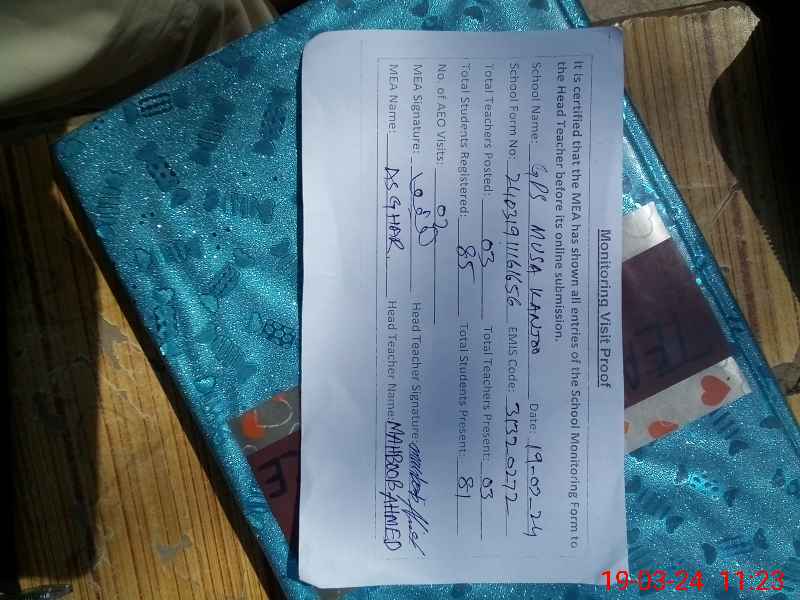 Monitoring Visit Proof
It is certified that the MEA has shown all entries of the School Monitoring Form to
the Head Teacher before its online submission.
School Name: GPS MUSA KANJOO Date: 19-03-24
School Form No: EMIS Code: 31320272
Total Teachers Posted: 03 Total Teachers Present: 03
Total Students Registered: 85 Total Students Present: 81
No. of AEO Visits: 02
MEA Signature: Head Teacher Signature:
MEA Name: ASGHAR Head Teacher Name: MAHBOOB AHMED
19-03-24 11:23